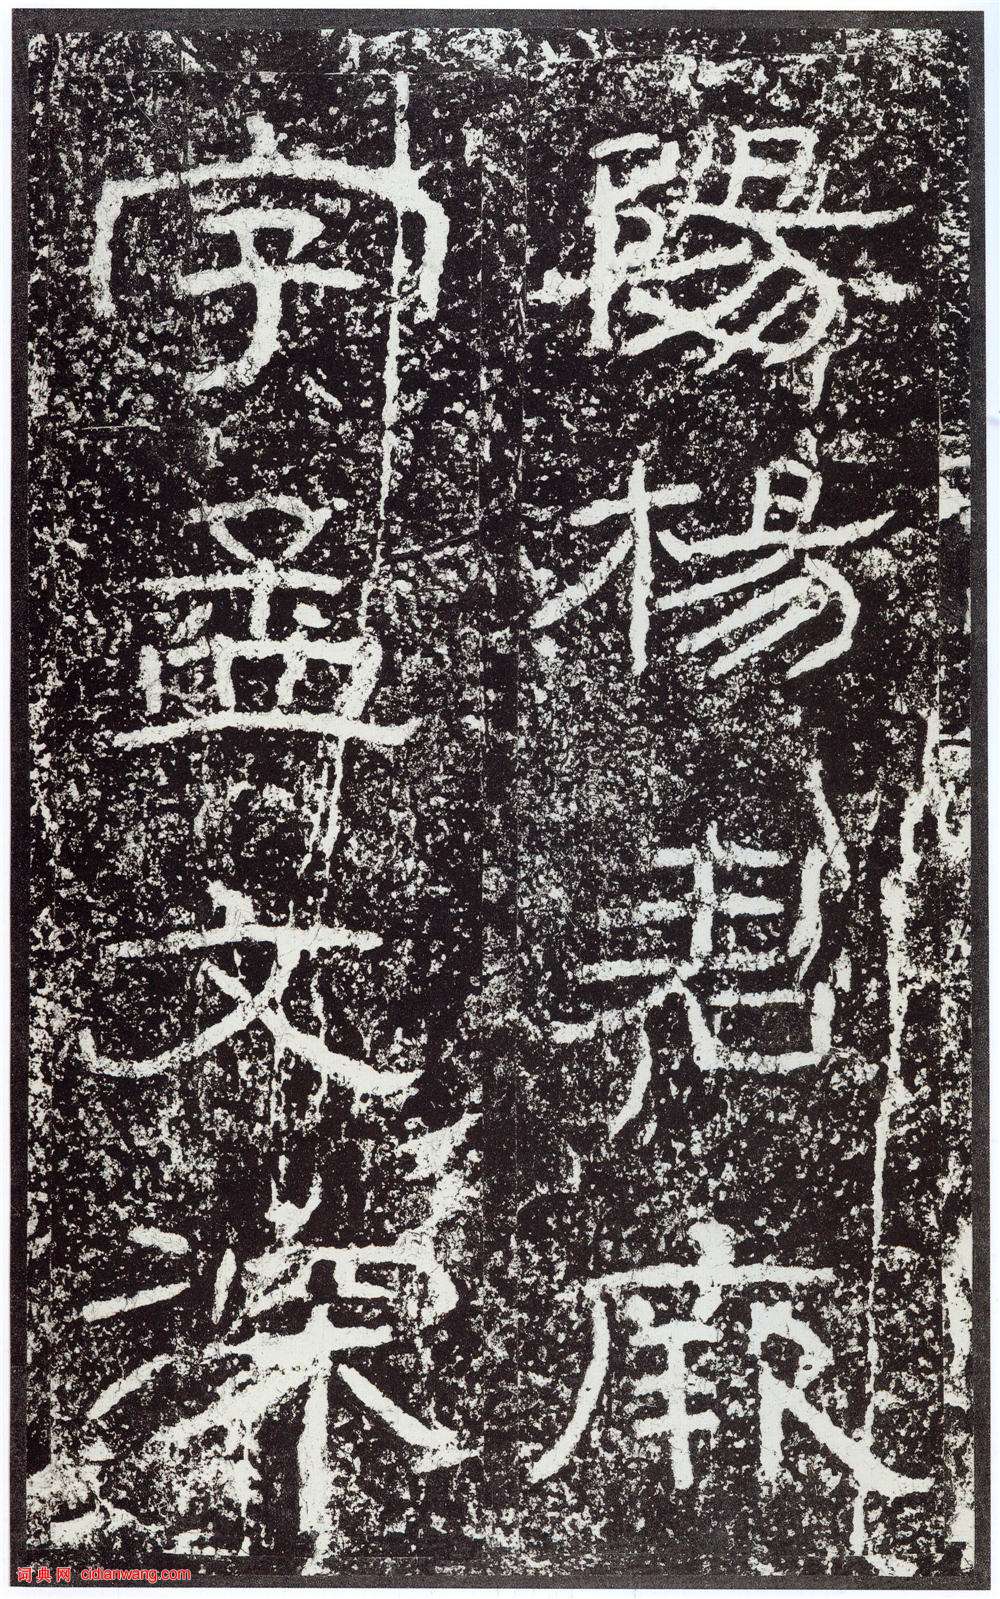 陽楊君厥
字孟文深
词典网 cidianwang.com